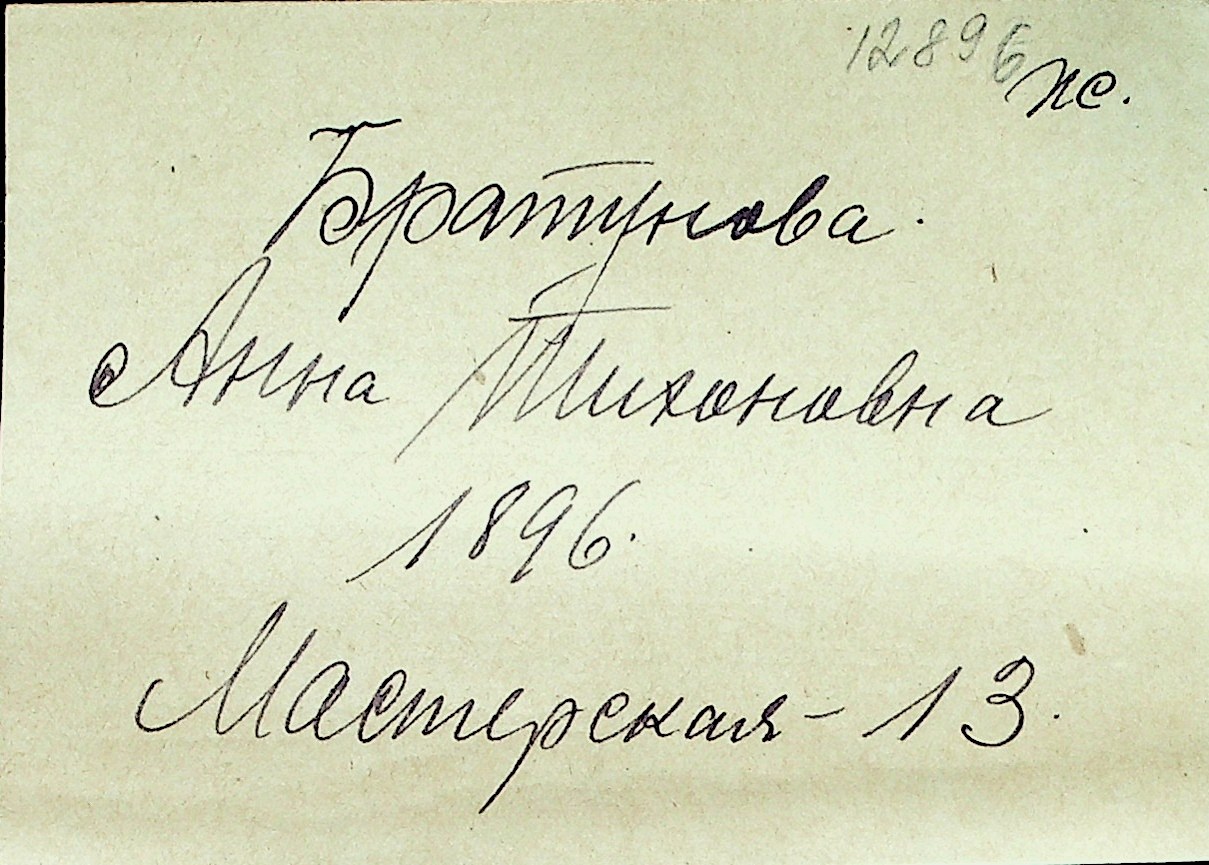 12896
пс.
Братунова.
Анна Тихоновна
1896.
Мастерская - 13.